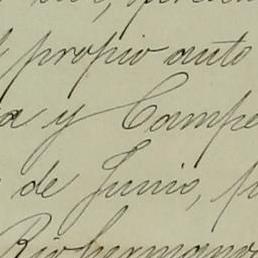 propio auto
a y Campe
de Junio, p
Riohermanos